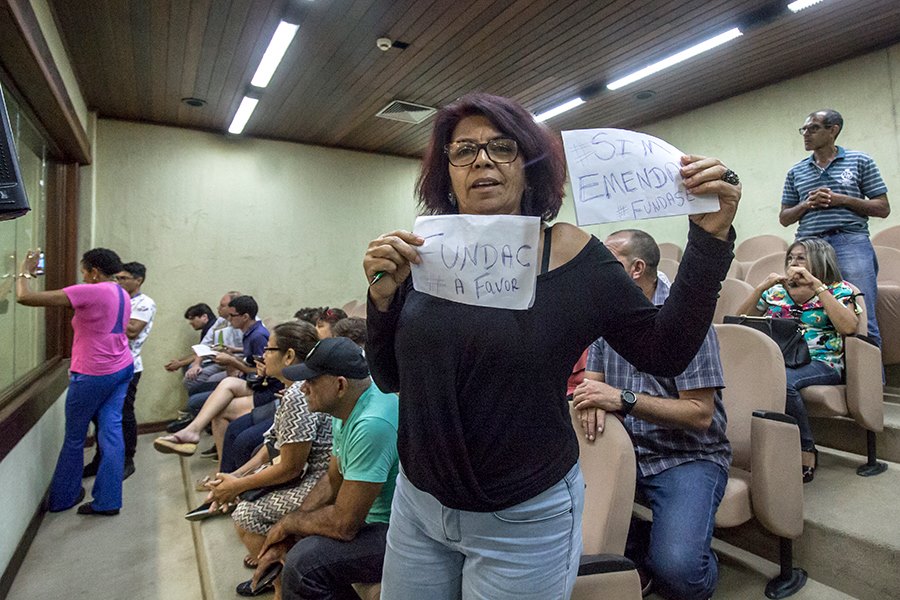 FUNDAC
# A FAVOR
#SIM
EMENDA
#FUNDASE